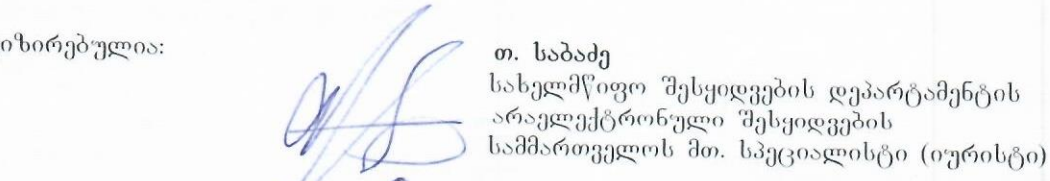 იზირებულია:
თ. საბაძე
სახელმწიფო შესყიდვების დეპარტამენტის
არაელექტრონული შესყიდვების
სამმართველოს მთ. სპეციალისტი (იურისტი)